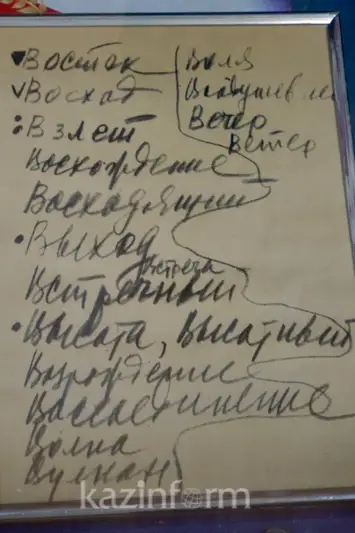 Восток
Восход
Взлет
Восхождение
Восходящий
Выход
Встреча
Встречный
Высота, Высотный
Возрождение
Воссоединение
Волна
Вулкан
Воля
Вечер
Ветер
kazinform